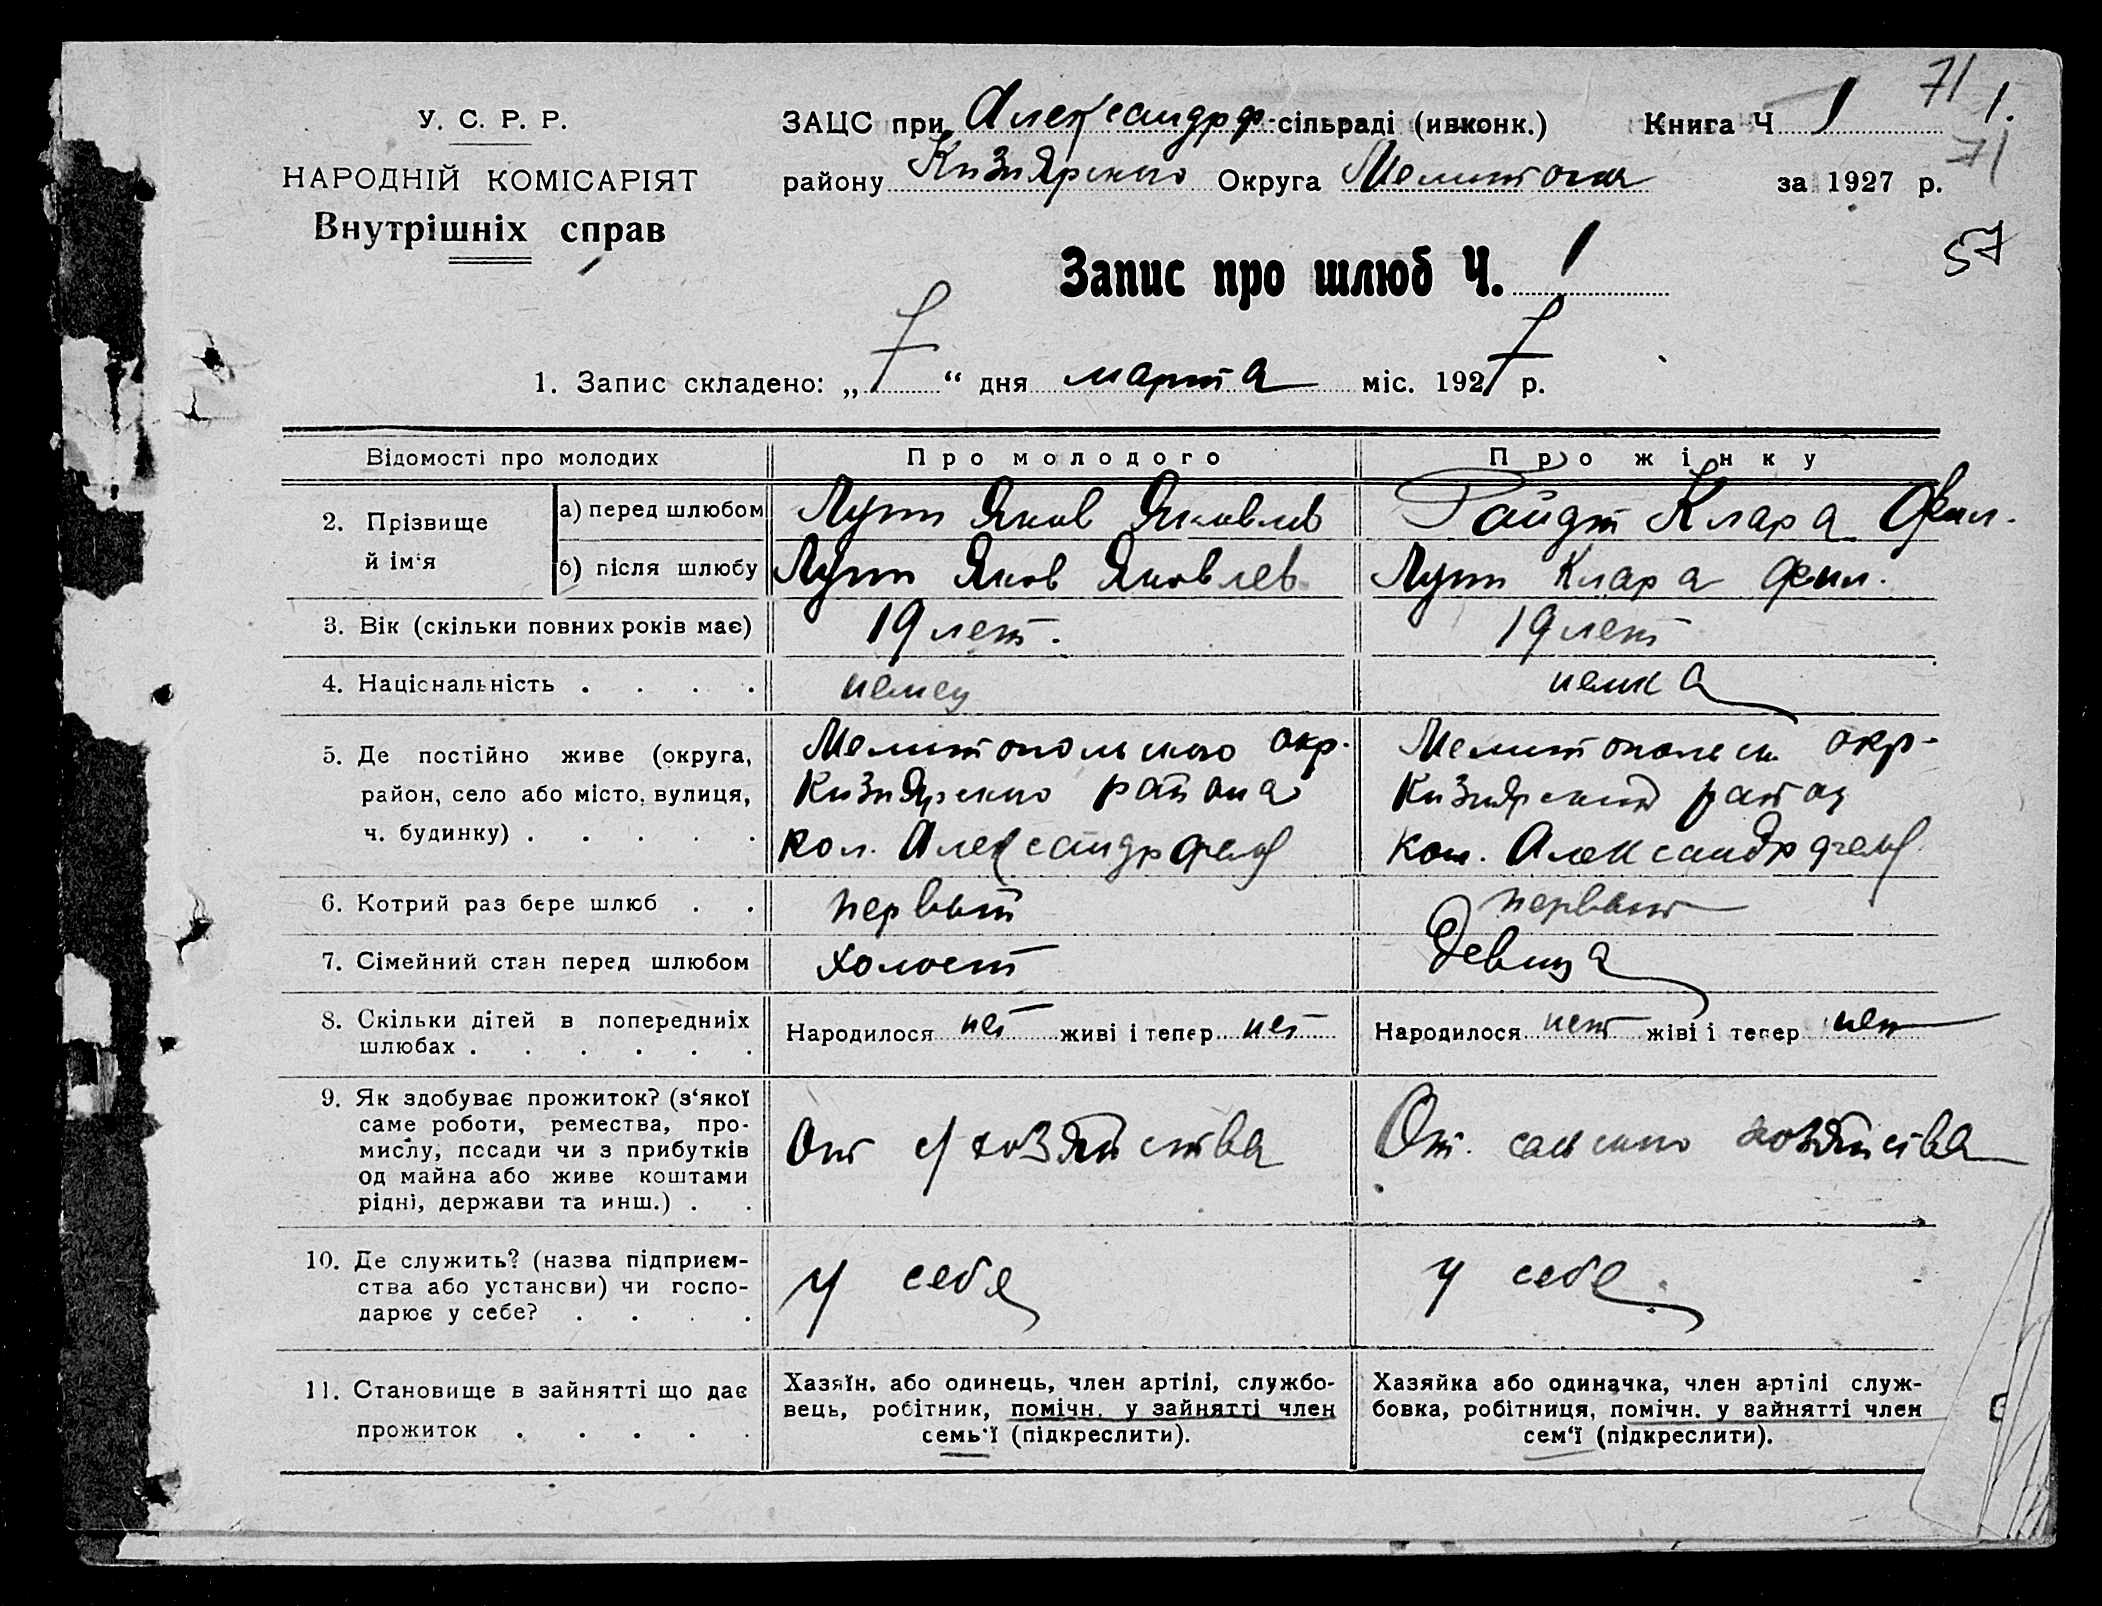 71
1.
У. С. Р. Р.
ЗАЦС при Александрф. сільраді (ивконк.)
Книга Ч 1
71
НАРОДНІЙ КОМІСАРІЯТ
району Кизиярского Округа Мелитопол
за 1927 р.
Внутрішніх справ
57
Запис про шлюб Ч. 1
1. Запис складено: „7“ дня марта міс. 1927 р.
Відомості про молодих
Про молодого
Про жінку
2. Прізвище й ім‘я
а) перед шлюбом
Лутт Яков Яковлев
Райдт Клара Фил.
б) після шлюбу
Лутт Яков Яковлев
Лутт Клара Фил.
3. Вік (скільки повних років має)
19 лет.
19 лет
4. Національність . . . .
немец
немка
5. Де постійно живе (округа,
район, село або місто, вулиця,
ч. будинку) . . . . .
Мелитопольского окр.
Кизиярского района
кол. Александрфельд
Мелитопольск. окр.
Кизиярский район
кол. Александрфельд
6. Котрий раз бере шлюб . .
первый
первый
7. Сімейний стан перед шлюбом
холост
девица
8. Скільки дітей в попередниіх
шлюбах . . . . . .
Народилося нет живі і тепер нет
Народилося нет жіві і тепер нет
9. Як здобуває прожиток? (з‘якої
саме роботи, ремества, про-
мислу, посади чи з прибутків
од майна або живе коштами
рідні, держави та инш.) . .
От с/хозяйства
От. сельского хозяйства
10. Де служить? (назва підприєм-
ства або установи) чи госпо-
дарює у себе? . . . .
у себя
у себя
11. Становище в зайнятті що дає
прожиток . . . . .
Хазяїн, або одинець, член артілі, службо-
вець, робітник, помічн. у зайнятті член
семь‘ї (підкреслити).
Хазяйка або одиначка, член артілі служ-
бовка, робітниця, помічн. у зайнятті член
сем‘ї (підкреслити).